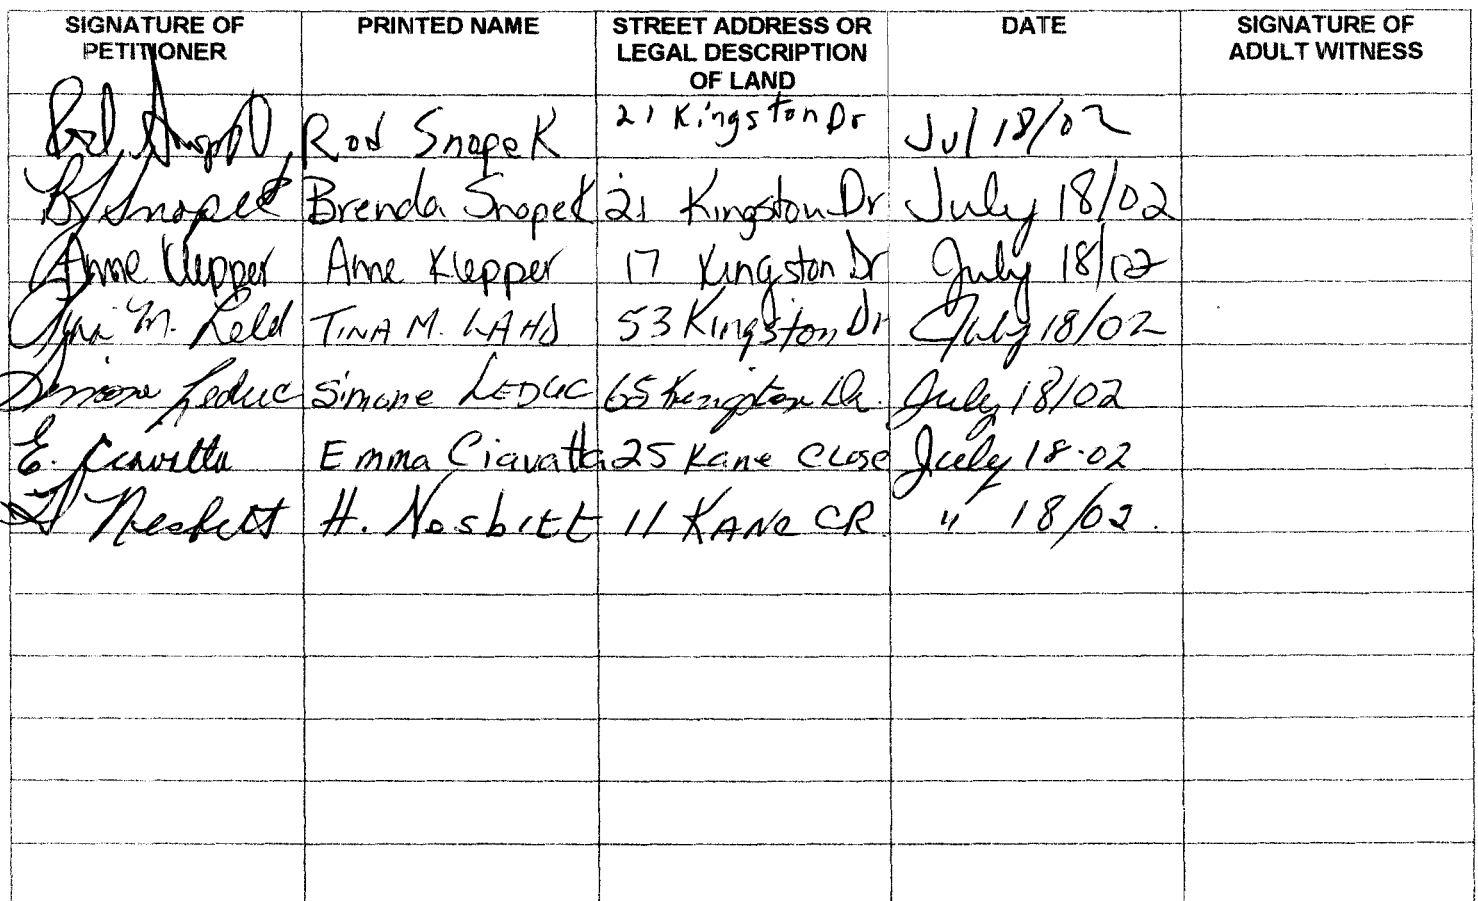 SIGNATURE OF PETITIONER PRINTED NAME STREET ADDRESS OR LEGAL DESCRIPTION OF LAND DATE SIGNATURE OF ADULT WITNESS
Rod Snopek 21 Kingston Dr Jul 18/02
B Snopek Brenda Snopek 21 Kingston Dr July 18/02
Anne Klepper Anne Klepper 17 Kingston Dr July 18/02
Tina M. TINA M. 53 Kingston Dr July 18/02
Simone Leduc Simone LEDUC 65 Kingston Dr. July 18/02
E. Ciavatta Emma Ciavatta 25 Kane Close July 18-02
H Nesbitt H. Nesbitt 11 KANE CR. " 18/02.